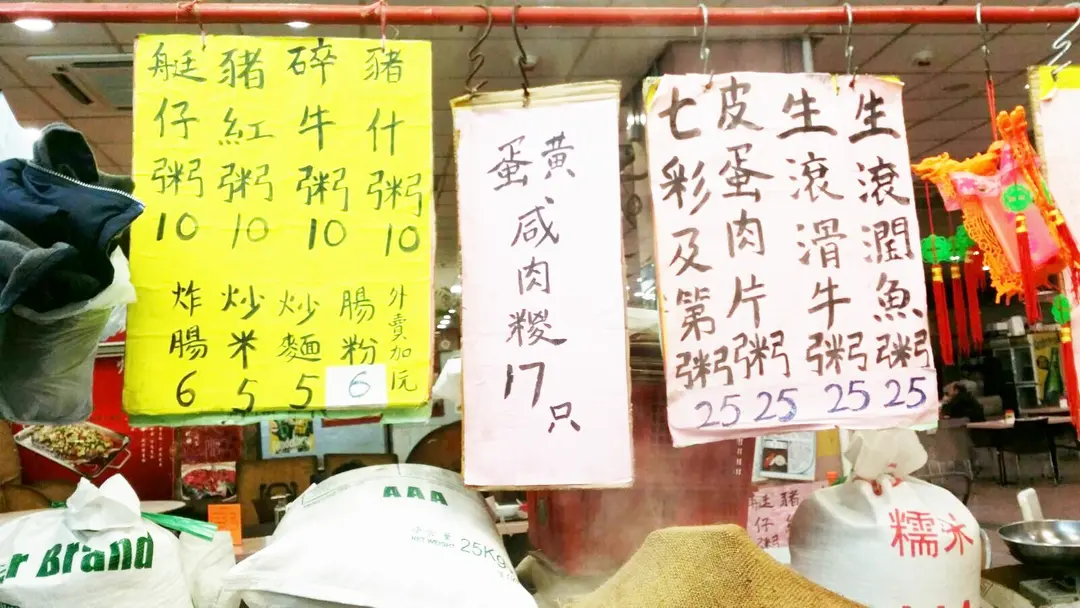 豬什粥10
碎牛粥10
豬紅粥10
艇仔粥10
外賣加元
腸粉6
炒麵5
炒米5
炸腸6
蛋黃
咸肉糉
17只
生滾潤魚粥25
生滾滑牛粥25
皮蛋肉片粥25
七彩及第粥25
er Brand
AAA
NET WEIGHT 25Kg
糯米
艇仔粥